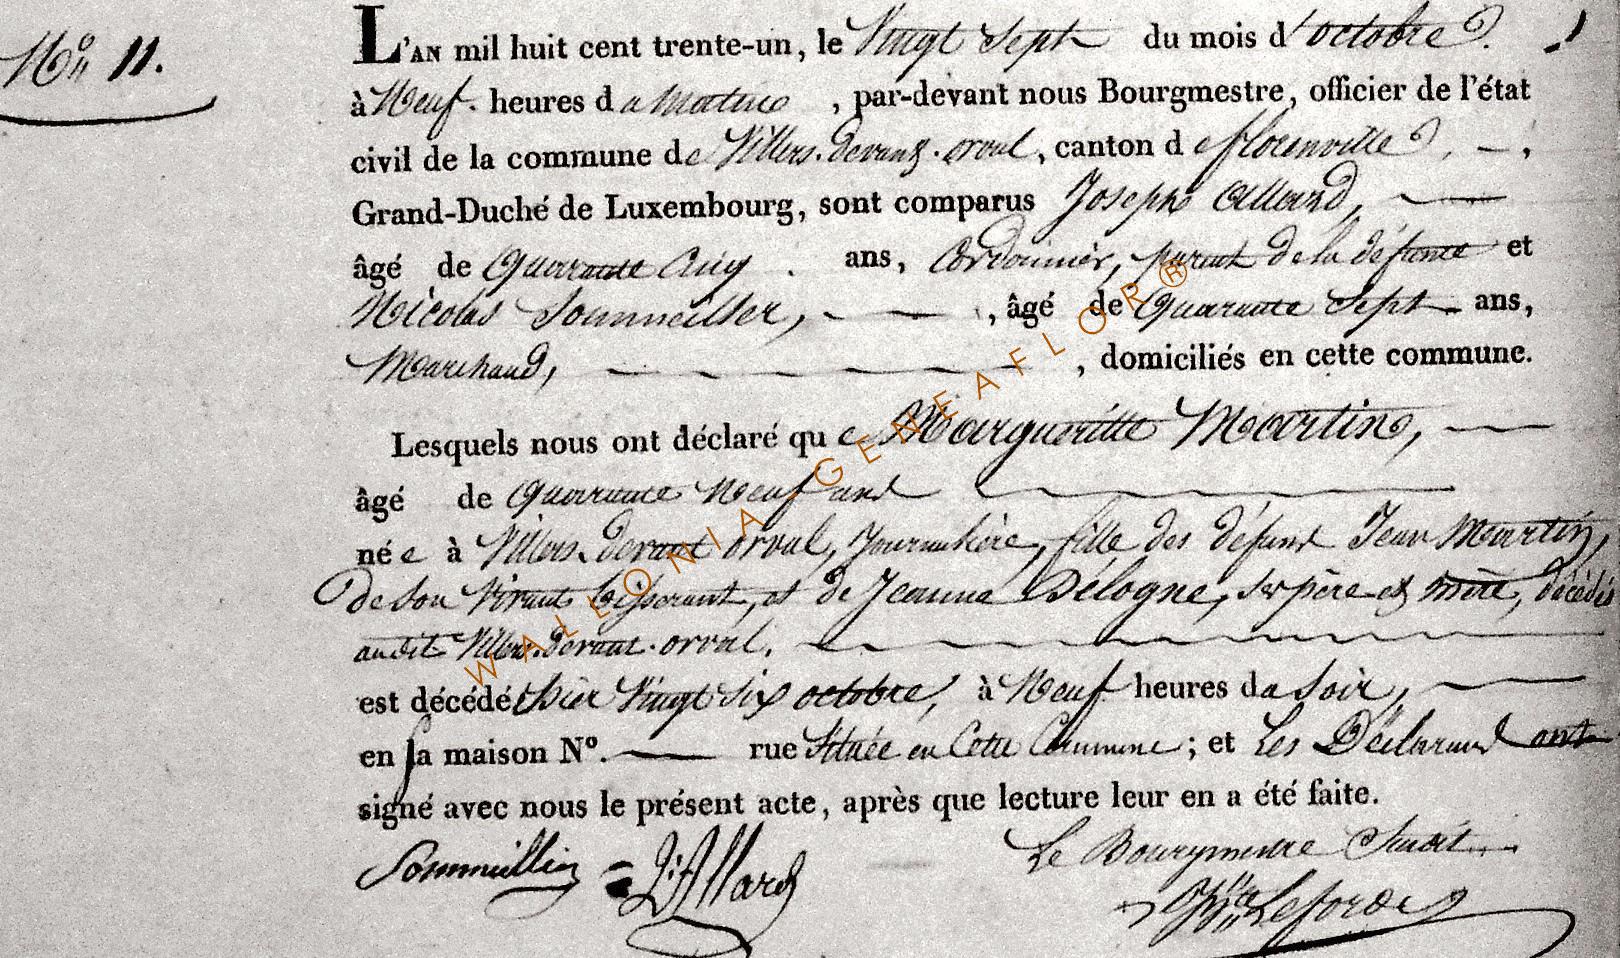 No 11.
L'AN mil huit cent trente-un, le Vingt Sept du mois d'octobre.
à Neuf heures du matin, par-devant nous Bourgmestre, officier de l'état
civil de la commune de Villers-devant-orval, canton de florenville, –,
Grand-Duché de Luxembourg, sont comparus Joseph Allard,
âgé de Quarante Cinq ans, Cordonnier, parent de la défunte et
Nicolas Sommeiller, âgé de Quarante Sept ans,
Marchand, domiciliés en cette commune.
Lesquels nous ont déclaré que Margueritte Martin,
âgé de Quarante Neuf ans
née à Villers-devant orval, Journalière, fille des défunt Jean Martin,
de son Vivant tisserant, et de Jeanne Délogne, ses père et mère, décédés
audit Villers-devant-orval.
est décédé hier Vingt Six octobre, à Neuf heures du Soir,
en sa maison No. rue Située en Cette Commune; et Les Déclarant ont
signé avec nous le présent acte, après que lecture leur en a été faite.
Sommeillier J: Allard
Le Bourgmestre Susdit
Leford
WALLONIA-GENEAFLOR®